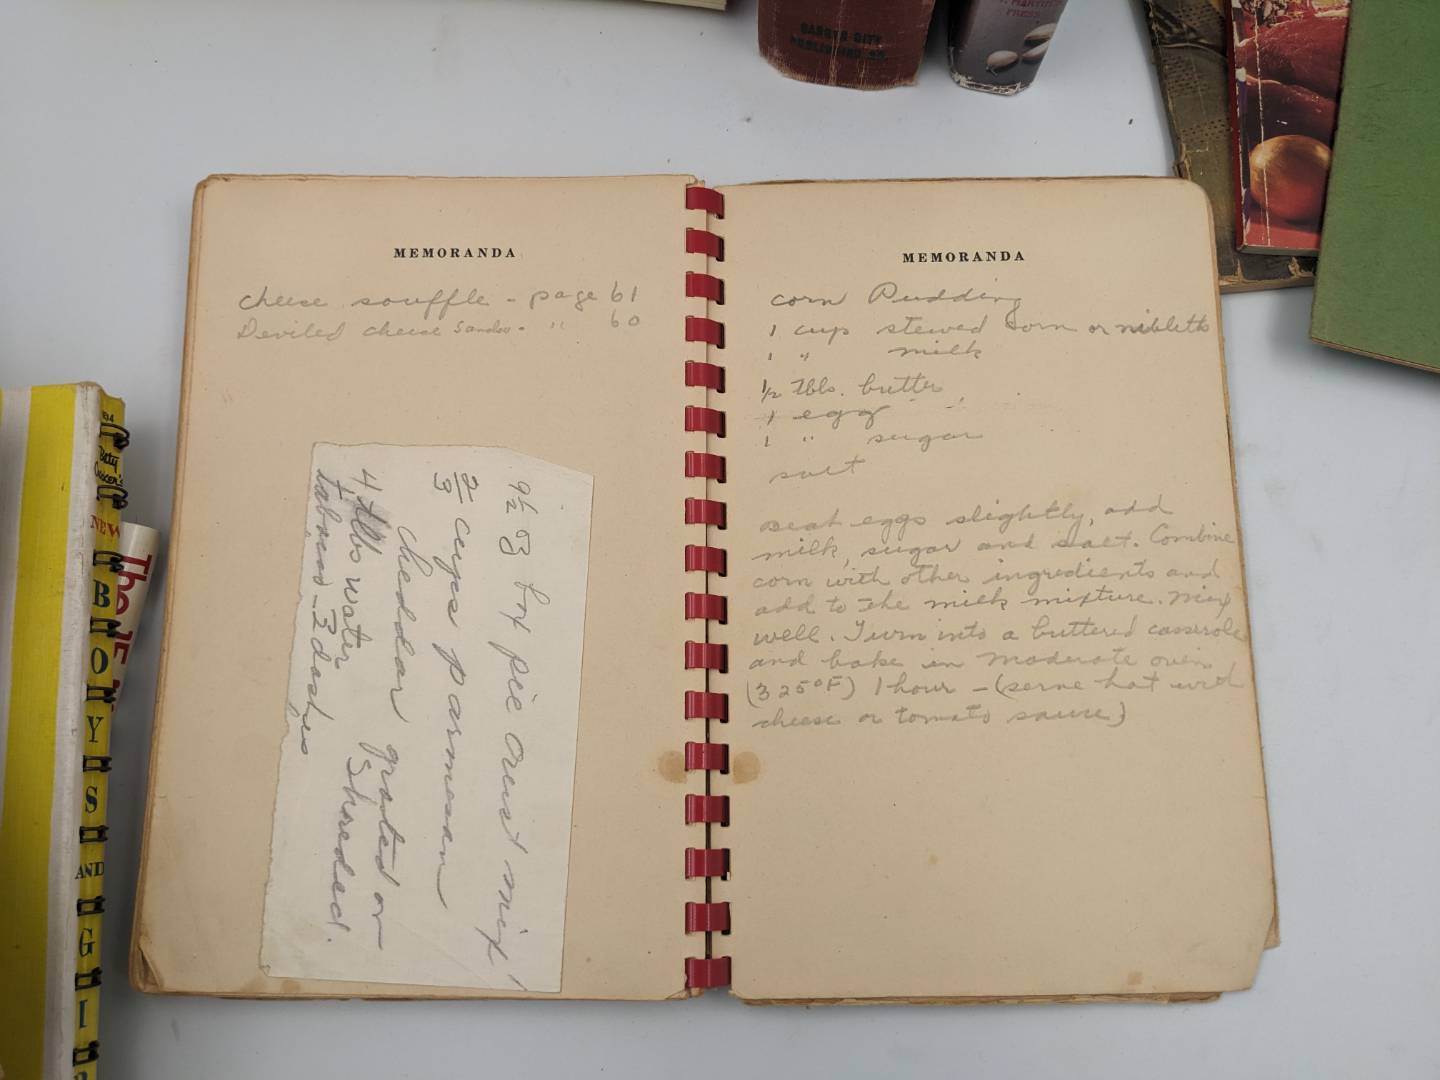 GARDEN CITY
PUBLISHING CO.
ST. MARTIN'S
PRESS
MEMORANDA
cheese souffle - page 61
Deviled cheese Sandw. " 60
9½ oz box pie crust mix
2/3 cups parmesan
cheddar grated or
shredded.
4 tbs water
tabasco - 2 dashes
MEMORANDA
corn Pudding
1 cup stewed corn or nibleths
1 " milk
1/2 Tbls. butter
1 egg
1 " sugar
salt
Beat eggs slightly, add
milk, sugar and salt. Combine
corn with other ingredients and
add to the milk mixture. Mix
well. Turn into a buttered casserole
and bake in moderate oven
(325°F) 1 hour - (serve hot with
cheese or tomato sauce)
Betty
Crocker's
NEW
BOYS
AND
GI
The